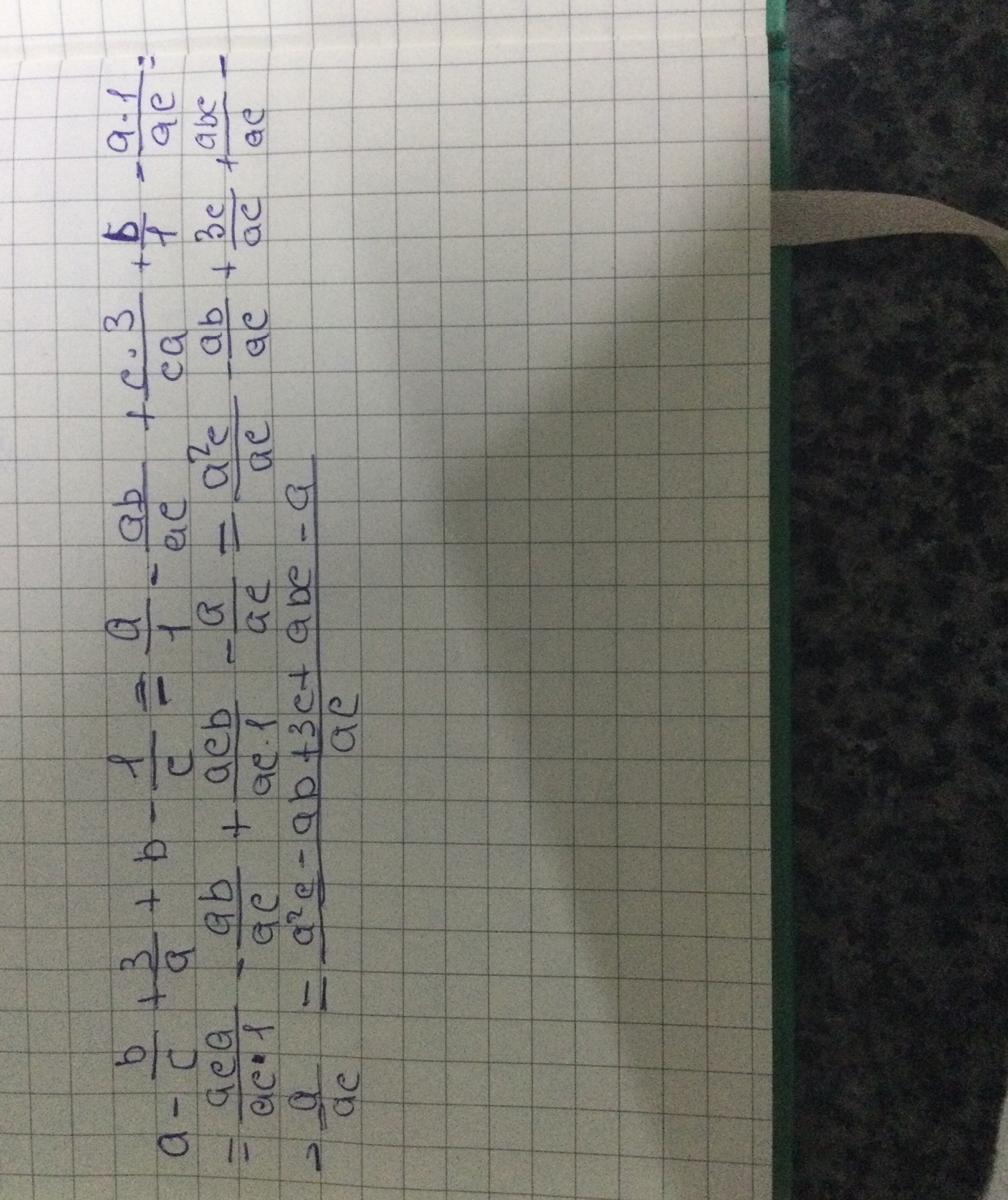 a - b/c + 3/a + b - 1/c = a/1 - ab/ac + c·3/ca + b/1 - a·1/ac =
= aca/ac·1 - ab/ac + acb/ac·1 - a/ac = a²c/ac - ab/ac + 3c/ac + abc/ac -
- a/ac = a²c - ab + 3c + abc - a/ac